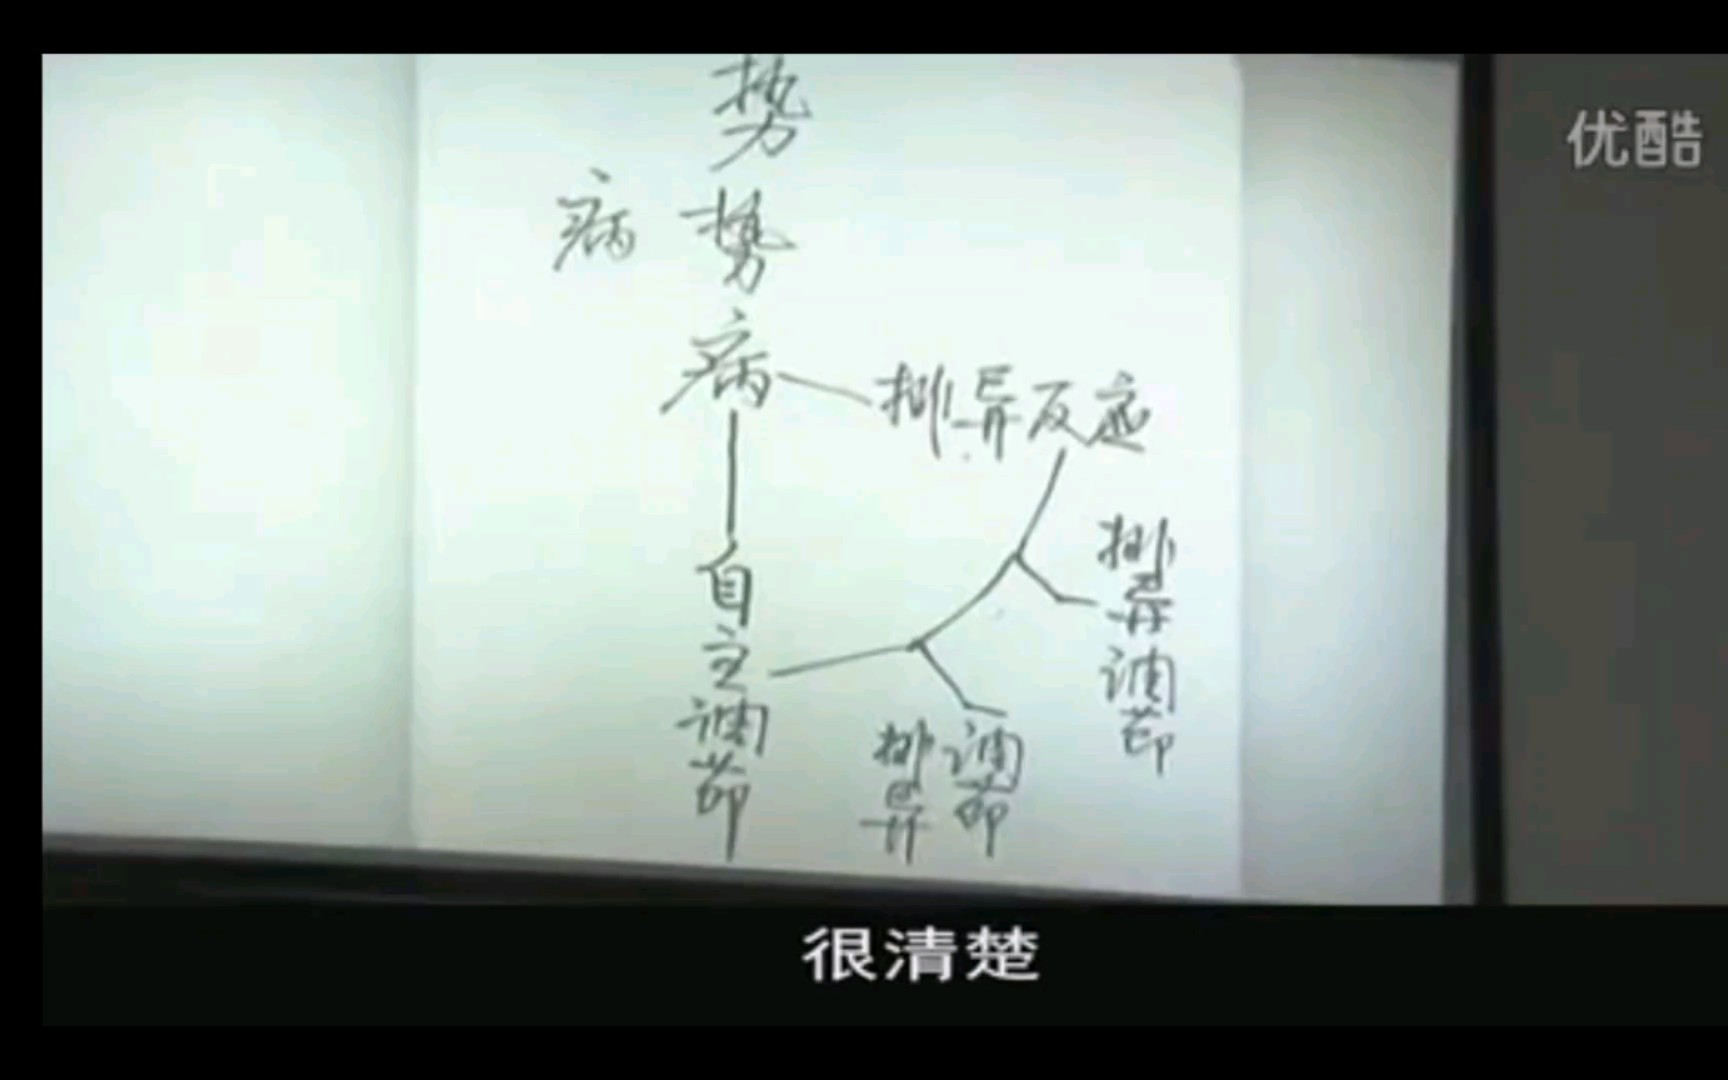 势
优酷
病 势
病 排异反应
自主调节
排异调节
排异调节
很清楚